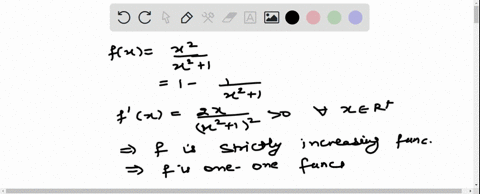 f(x) = x²/(x²+1)
= 1 - 1/(x²+1)
f'(x) = 2x/(x²+1)² >0 ∀ x∈R⁺
⇒ f is strictly increasing func.
⇒ f is one-one func